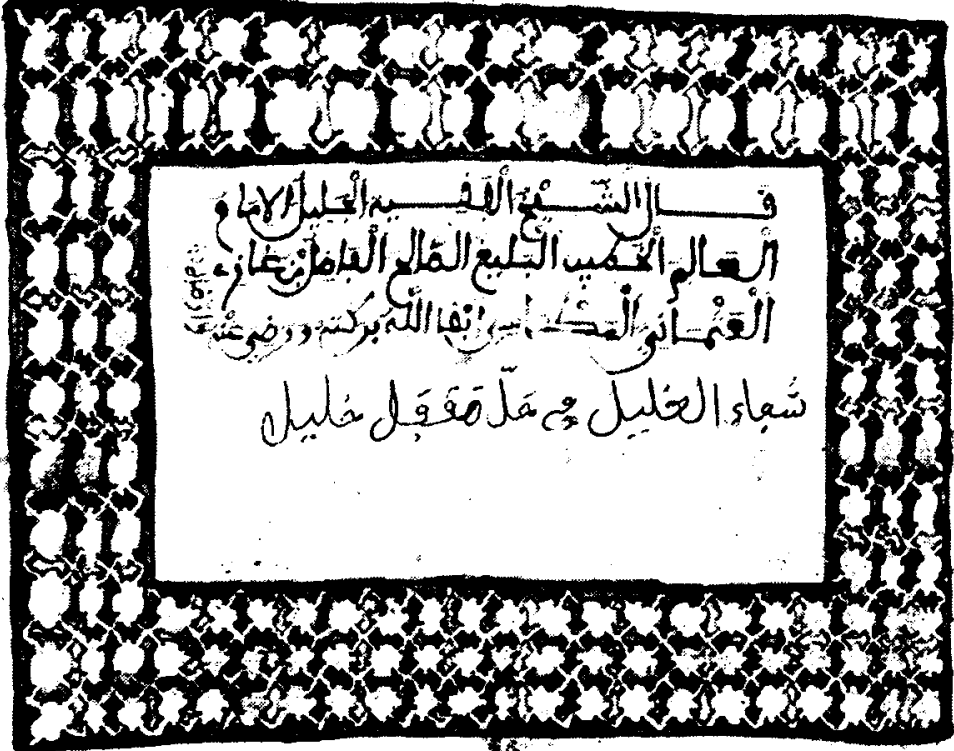 قال الشيخ الفقيه الجليل الامام
العالم الخطيب البليغ الصالح الفاضل ابن غازي
العثماني المكناسي نفعنا الله ببركته ورضي عنه
شفاء الغليل في حل مقفل خليل